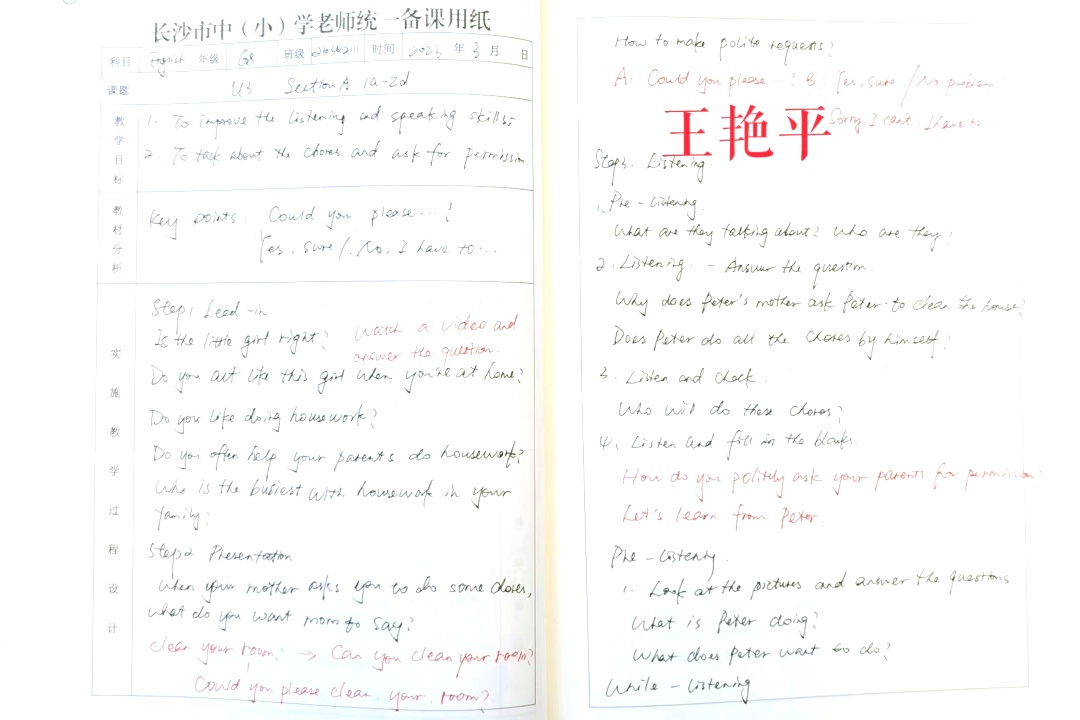 长沙市中（小）学老师统一备课用纸
科目 English 年级 G8 班级 时间 2023 年 3 月 日
课题 U3 Section A 1a-2d
教学目标
1. To improve the listening and speaking skills;
2. To talk about the chores and ask for permission
教材分析
Key points: Could you please...?
Yes, sure /. No, I have to...
实施教学过程设计
Step1 Lead-in
Is the little girl right? Watch a video and
answer the question.
Do you act like this girl when you're at home?
Do you like doing housework?
Do you often help your parents do housework?
Who is the busiest with housework in your
family?
Step2 Presentation
When your mother asks you to do some chores,
what do you want mom to say?
Clean your room? → Can you clean your room?
Could you please clean your room?
How to make polite requests?
A: Could you please...? B: Yes, sure / No problem
Sorry, I can't. I have to
王艳平
Step3. Listening.
1. Pre-listening.
What are they talking about? Who are they?
2. Listening. - Answer the question.
Why does Peter's mother ask Peter to clean the house?
Does Peter do all the chores by himself?
3. Listen and check.
Who will do these chores?
4. Listen and fill in the blanks.
How do you politely ask your parents for permission?
Let's learn from Peter.
Pre-listening.
1. Look at the pictures and answer the questions
What is Peter doing?
What does Peter want to do?
While-listening